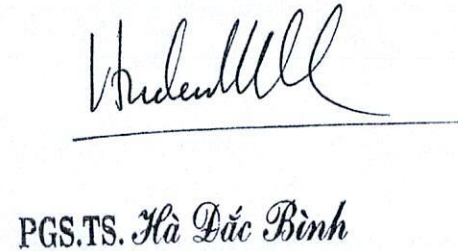 PGS.TS. Hà Đắc Bình